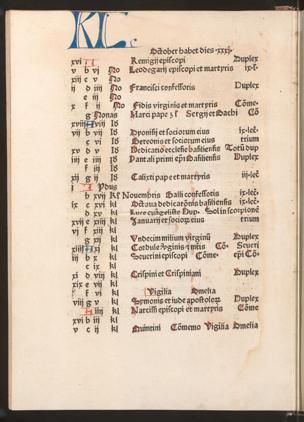 KL
October habet dies .xxxj.
xvi A Remigij episcopi Duplex
v b vj No Leodegarij episcopi et martyris ix.l.
xiij c v No
ij d iiij No Francisci confessoris Duplex
e iij No
x f ij No Fidis virginis et martyris Cōme.
g Nonas Marci pape Sergij et Bachi Cō
xviij A viij Id
vij b vij Id Dyonisij et sociorum eius ix.lec.
c vj Id Gereonis et sociorum eius trium
xv d v Id Dedicatio ecclesie basiliensis Totū dup
iiij e iiij Id Pantali primi epi basiliensis Duplex
f iij Id
xij g ij Id Calixti pape et martyris iij.lec
j A Idus
b xvij Kl Novembris Galli confessoris ix.lec.
ix c xvj kl Octaua dedicationis basiliensis ix.lec.
d xv kl Luce evangeliste Dup. Sol in scorpione
xvij e xiiij kl Januarij et socior eius trium
vj f xiij kl
g xij kl Undecim milium virginū Duplex
xiiij A xj kl Cordule Cō. Seueri
iij b x kl Seuerini episcopi Cōme. epi Cō.
c ix kl
xi d viij kl Crispini et Crispiniani Duplex
xix e vij kl
f vj kl Vigilia Omelia
viij g v kl Symonis et iude apostolor Duplex
A iiij kl Narcissi episcopi et martyris Cōme
xvi b iij kl
v c ij kl Quintini Cōmemo Vigilia Omelia